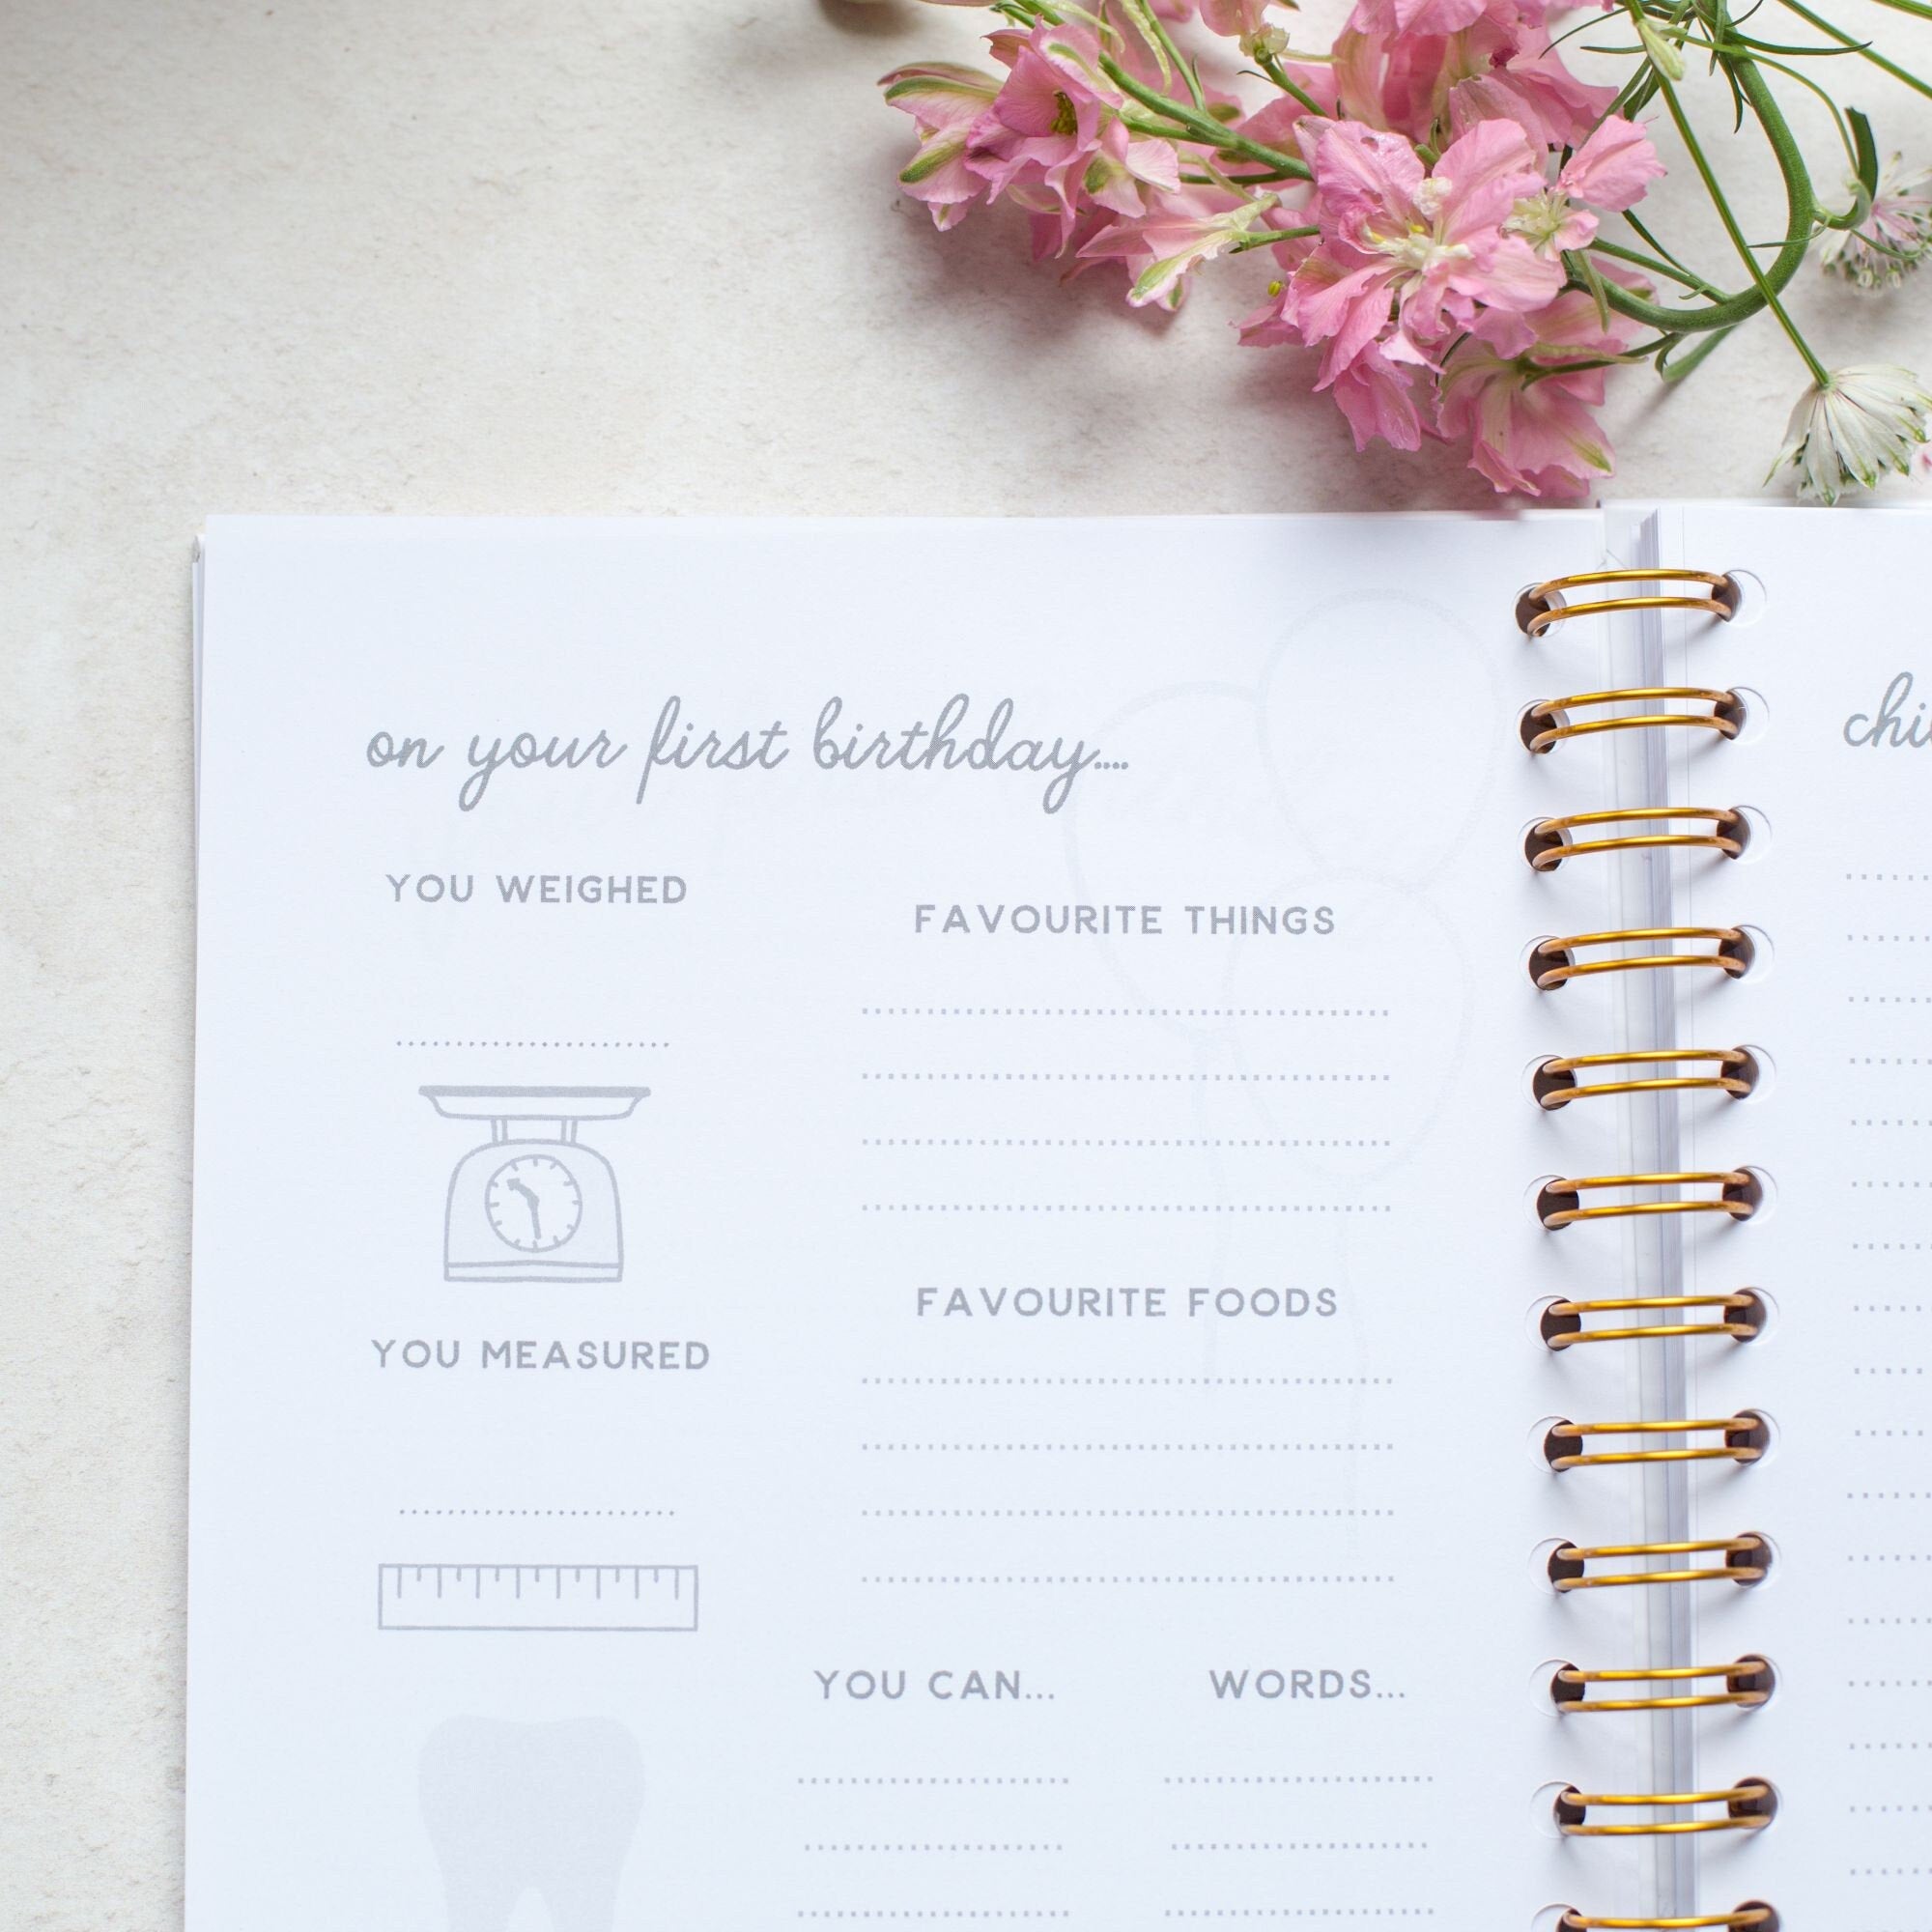 on your first birthday....
YOU WEIGHED
FAVOURITE THINGS
FAVOURITE FOODS
YOU MEASURED
YOU CAN...
WORDS...